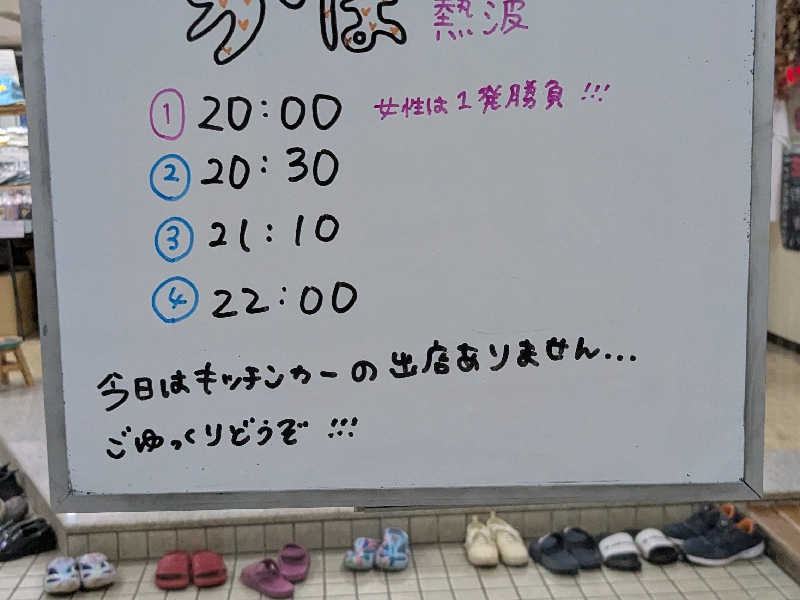 熱波
① 20:00 女性は1発勝負!!!
② 20:30
③ 21:10
④ 22:00
今日はキッチンカーの出店ありません...
ごゆっくりどうぞ!!!